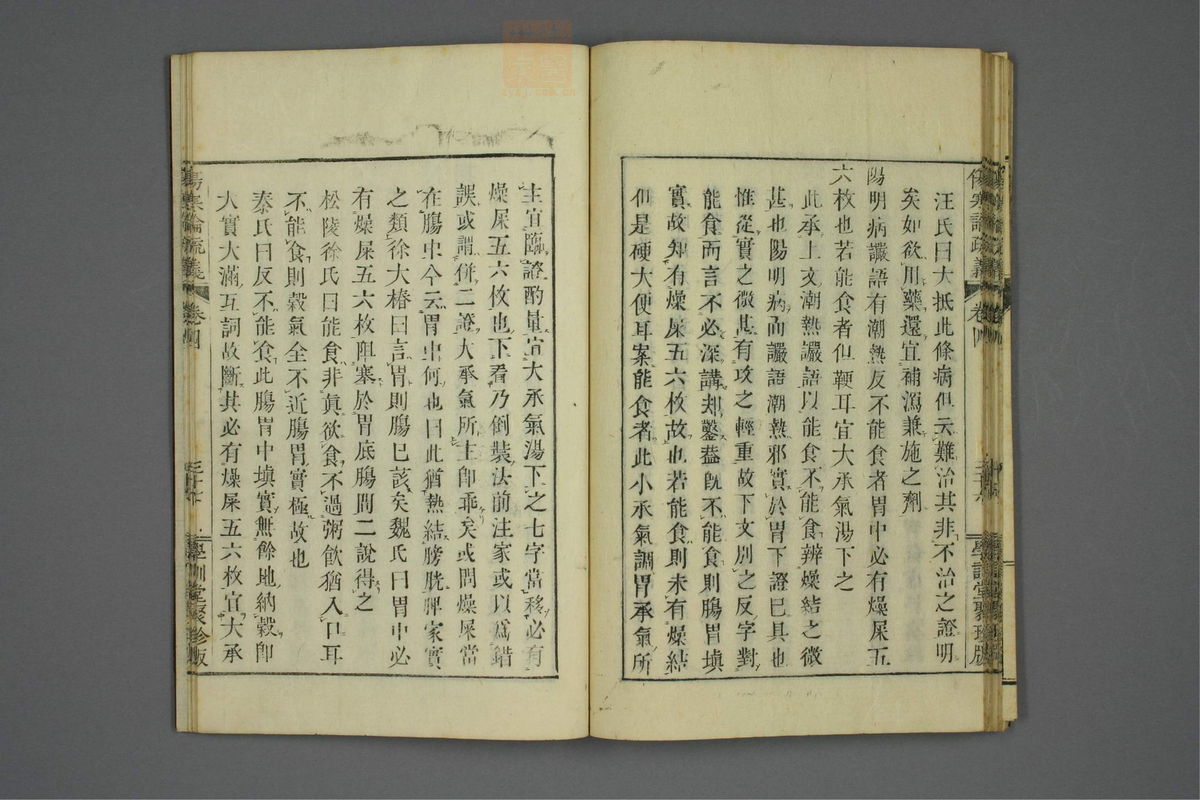 汪氏曰大抵此條病但云難治其非不治之證明
矣如欲用藥還宜補瀉兼施之劑
陽明病讝語有潮熱反不能食者胃中必有燥屎五
六枚也若能食者但鞕耳宜大承氣湯下之
此承上文潮熱讝語以能食不能食辨燥結之微
甚也陽明病而讝語潮熱邪實於胃下證已具也
惟從實之微甚有攻之輕重故下文別之反字對
能食而言不必深講却鑿蓋既不能食則腸胃塡
實故知有燥屎五六枚故也若能食則未有燥結
但是硬大便耳案能食者此小承氣調胃承氣所
傷寒論疏義
卷四
學訓堂聚珍版
主宜臨證酌量宜大承氣湯下之七字當移必有
燥屎五六枚也下看乃倒裝法前注家或以爲錯
誤或謂併二證大承氣所主卽乖矣或問燥屎當
在腸中今云胃中何也曰此猶熱結膀胱脾家實
之類徐大椿曰言胃則腸已該矣魏氏曰胃中必
有燥屎五六枚阻塞於胃底腸間二說得之
松陵徐氏曰能食非眞欲食不過粥飮猶入口耳
不能食則穀氣全不近腸胃實極故也
秦氏曰反不能食此腸胃中塡實無餘地納穀卽
大實大滿互詞故斷其必有燥屎五六枚宜大承
傷寒論疏義
卷四
學訓堂聚珍版